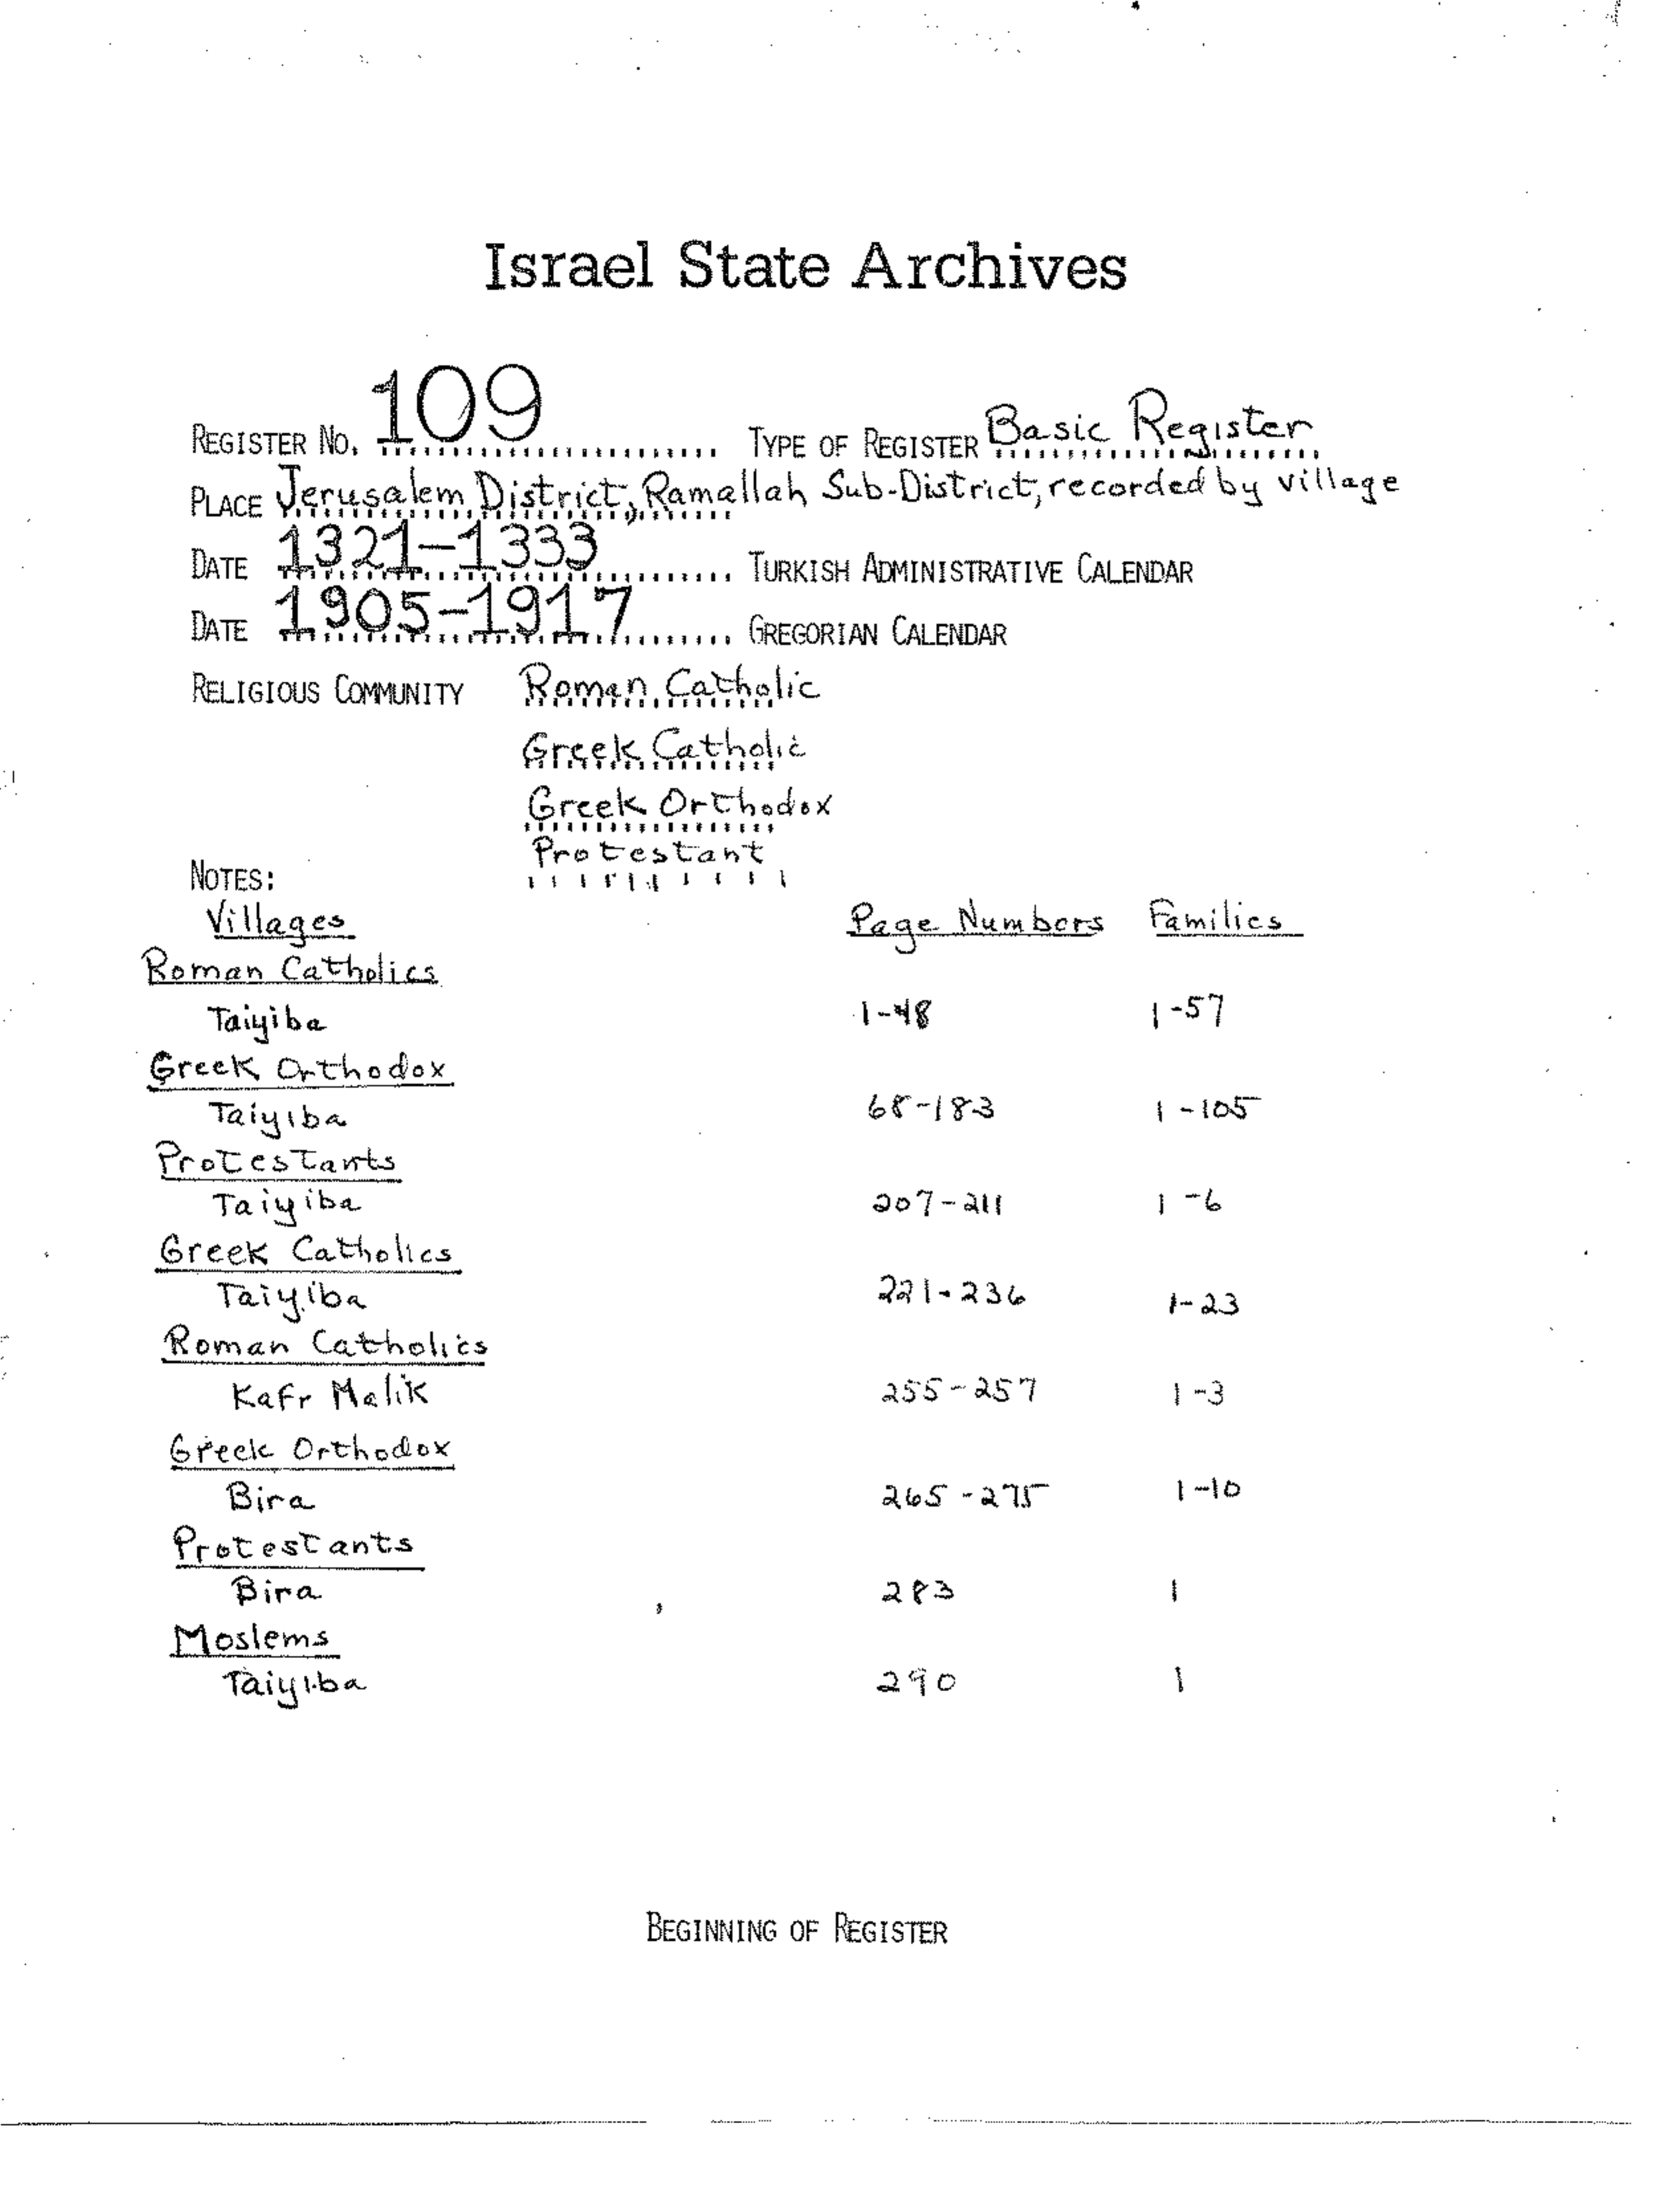 Israel State Archives
REGISTER NO. 109 TYPE OF REGISTER Basic Register
PLACE Jerusalem District, Ramallah Sub-District, recorded by village
DATE 1321-1333 TURKISH ADMINISTRATIVE CALENDAR
DATE 1905-1917 GREGORIAN CALENDAR
RELIGIOUS COMMUNITY Roman Catholic
Greek Catholic
Greek Orthodox
Protestant
NOTES:
Villages Page Numbers Families
Roman Catholics
Taiyiba 1-48 1-57
Greek Orthodox
Taiyiba 68-183 1-105
Protestants
Taiyiba 207-211 1-6
Greek Catholics
Taiyiba 221-236 1-23
Roman Catholics
Kafr Malik 255-257 1-3
Greek Orthodox
Bira 265-275 1-10
Protestants
Bira 283 1
Moslems
Taiyiba 290 1
BEGINNING OF REGISTER